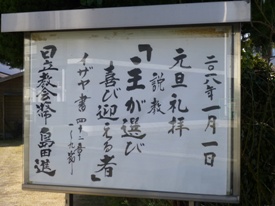 二〇一八年一月一日
元旦礼拝
説教
「王が選び
喜び迎える者」
イザヤ書 四十二章
一～九節
日立教会 牧師 島田進